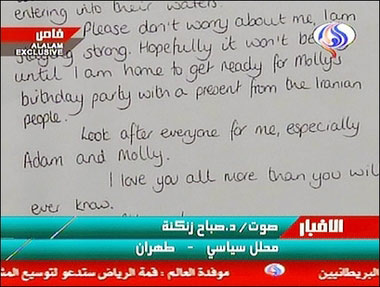 entering into their waters.
خاص
ALALAM
EXCLUSIVE
Please don't worry about me, I am
staying strong. Hopefully it won't be
until I am home to get ready for Molly's
birthday party with a present from the Iranian
people.
Look after everyone for me, especially
Adam and Molly.
I love you all more than you will
ever know.
الاخبار
صوت / د.صباح زنكنة
محلل سياسي - طهران
البريطانيين موفدة العالم : قمة الرياض ستدعو لتوسيع